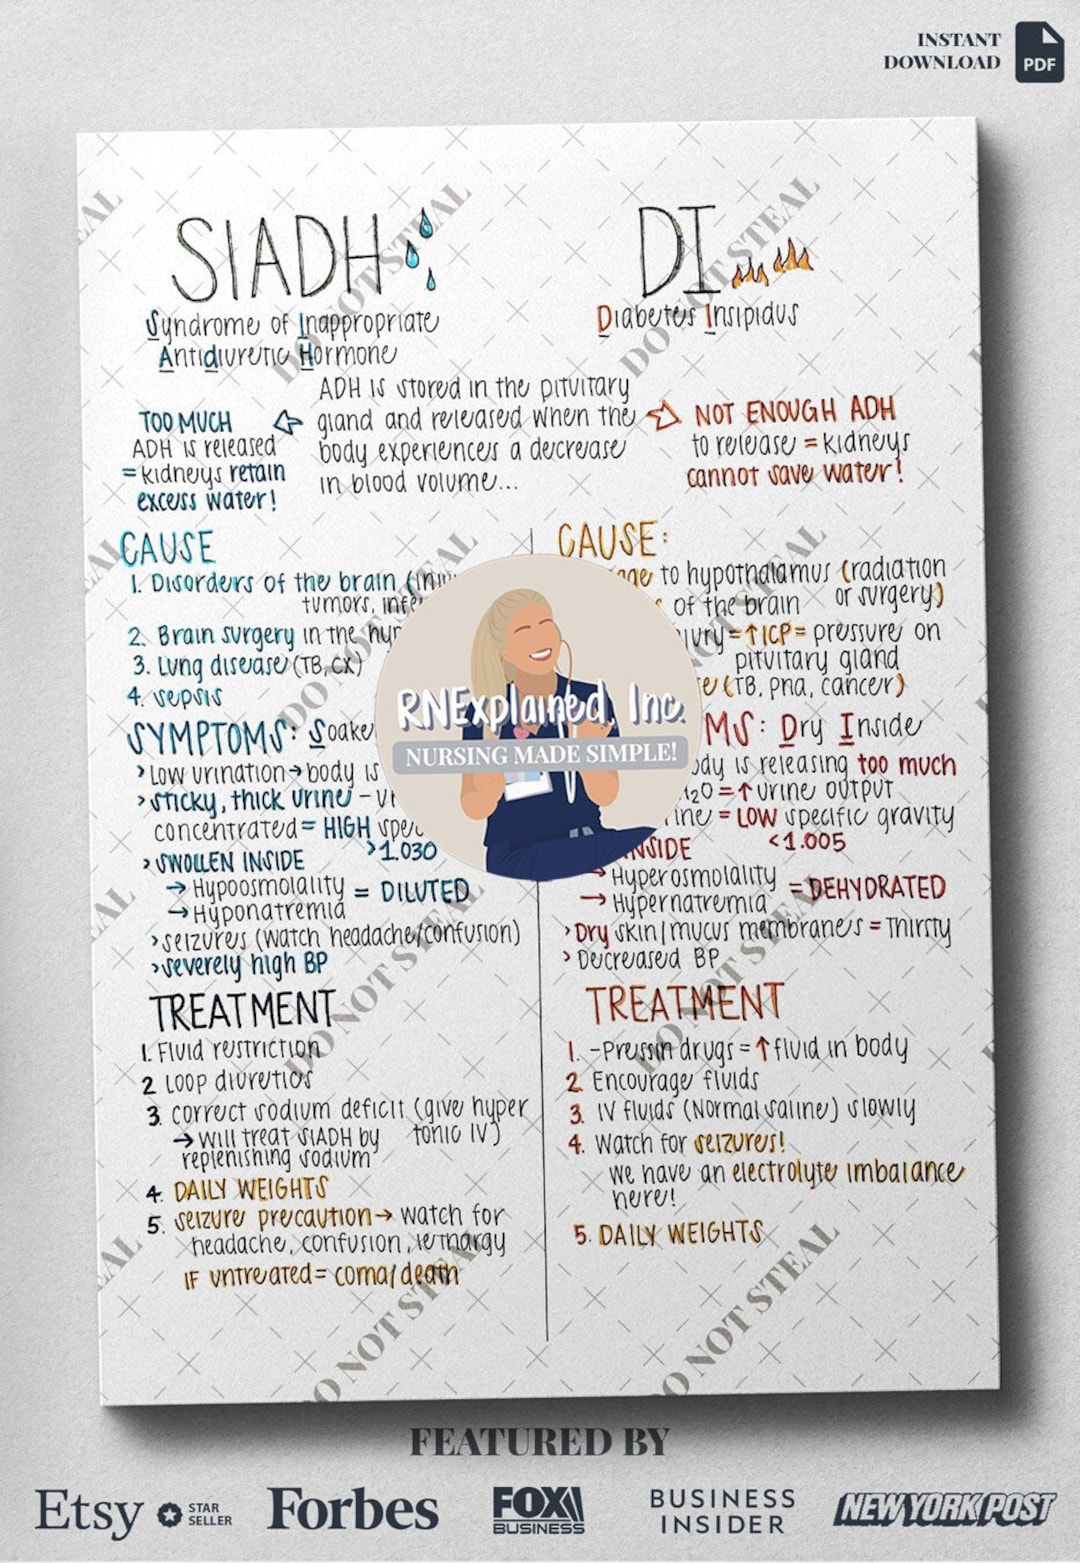 INSTANT
DOWNLOAD
PDF
SIADH
Syndrome of Inappropriate
Antidiuretic Hormone
DI
Diabetes Insipidus
ADH is stored in the pituitary
gland and released when the
body experiences a decrease
in blood volume...
TOO MUCH
ADH is released
= kidneys retain
excess water!
NOT ENOUGH ADH
to release = kidneys
cannot save water!
CAUSE
1. Disorders of the brain (
tumors,
2. Brain surgery in the
3. Lung disease (TB, CX)
4. sepsis
SYMPTOMS: Soake
›Low urination→body is
›sticky, thick urine -
concentrated = HIGH
>1.030
›SWOLLEN INSIDE
→ Hypoosmolality
→ Hyponatremia
= DILUTED
›seizures (watch headache/confusion)
›severely high BP
TREATMENT
1. Fluid restriction
2 Loop diuretics
3. correct sodium deficit (give hyper
tonic IV)
→ will treat SIADH by
replenishing sodium
4. DAILY WEIGHTS
5. seizure precaution→ watch for
headache, confusion, lethargy
IF untreated = coma/death
CAUSE:
to hypothalamus (radiation
or surgery)
of the brain
=↑ICP= pressure on
pituitary gland
(TB, pna, cancer)
MS: Dry Inside
is releasing too much
H2O =↑urine output
= LOW specific gravity
<1.005
INSIDE
→ Hyperosmolality
→ Hypernatremia
= DEHYDRATED
›Dry skin/mucus membranes = Thirsty
› Decreased BP
TREATMENT
1. -Pressin drugs = ↑fluid in body
2 Encourage fluids
3. IV fluids (Normal saline) slowly
4. Watch for seizures!
we have an electrolyte imbalance
here!
5. DAILY WEIGHTS
RNExplained, Inc.
NURSING MADE SIMPLE!
DO NOT STEAL
DO NOT STEAL
DO NOT STEAL
DO NOT STEAL
DO NOT STEAL
DO NOT STEAL
DO NOT STEAL
DO NOT STEAL
FEATURED BY
Etsy
STAR
SELLER
Forbes
FOX
BUSINESS
BUSINESS
INSIDER
NEW YORK POST